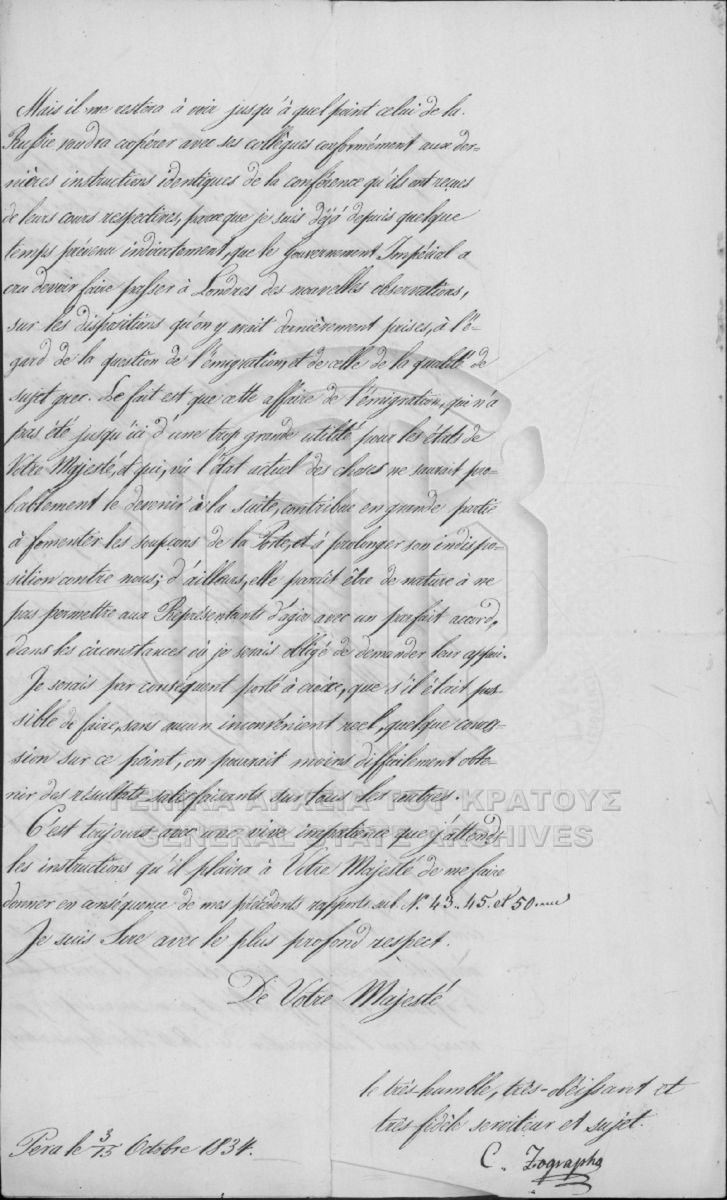 Mais il me restera à voir jusqu'à quel point celui de la
Russie voudra coopérer avec ses collègues conformément aux der-
nières instructions identiques de la conférence qu'ils ont reçues
de leurs cours respectives, parce que je suis déjà depuis quelque
temps prévenu indirectement, que le Gouvernement Impérial a
cru devoir faire passer à Londres des nouvelles observations,
sur les dispositions qu'on y avait dernièrement prises, à l'é-
gard de la question de l'émigration, et de celle de la qualité de
sujet grec. Le fait est que cette affaire de l'émigration, qui n'a
pas été jusqu'ici d'une trop grande utilité pour les états de
Votre Majesté, et qui, vû l'état actuel des choses ne saurait pro-
bablement le devenir à la suite, contribue en grande partie
à fomenter les soupçons de la Porte, et à prolonger son indispo-
sition contre nous; d'ailleurs, elle paraît être de nature à ne
pas permettre aux Représentants d'agir avec un parfait accord,
dans les circonstances où je serais obligé de demander leur appui.
Je serais par conséquent porté à croire, que s'il était pos-
sible de faire, sans aucun inconvénient réel, quelque conces-
sion sur ce point, on pourrait moins difficilement obte-
nir des résultats satisfaisants sur tous les autres.
ΓΕΝΙΚΑ ΑΡΧΕΙΑ ΤΟΥ ΚΡΑΤΟΥΣ
GENERAL STATE ARCHIVES
C'est toujours avec une vive impatience que j'attends
les instructions qu'il plaira à Votre Majesté de me faire
donner en conséquence de mes précédents rapports sub Nº 43. 45. et 50.
Je suis Sire avec le plus profond respect.
De Votre Majesté
le très-humble, très-obéissant et
très-fidèle serviteur et sujet.
C. Zographo
Pera le 3/15 Octobre 1834.